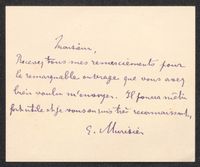 Monsieur,
Recevez tous mes remerciements pour
le remarquable ouvrage que vous avez
bien voulu m'envoyer. Il pourra m'être
fort utile et je vous en suis très reconnaissant,
E. Murisier